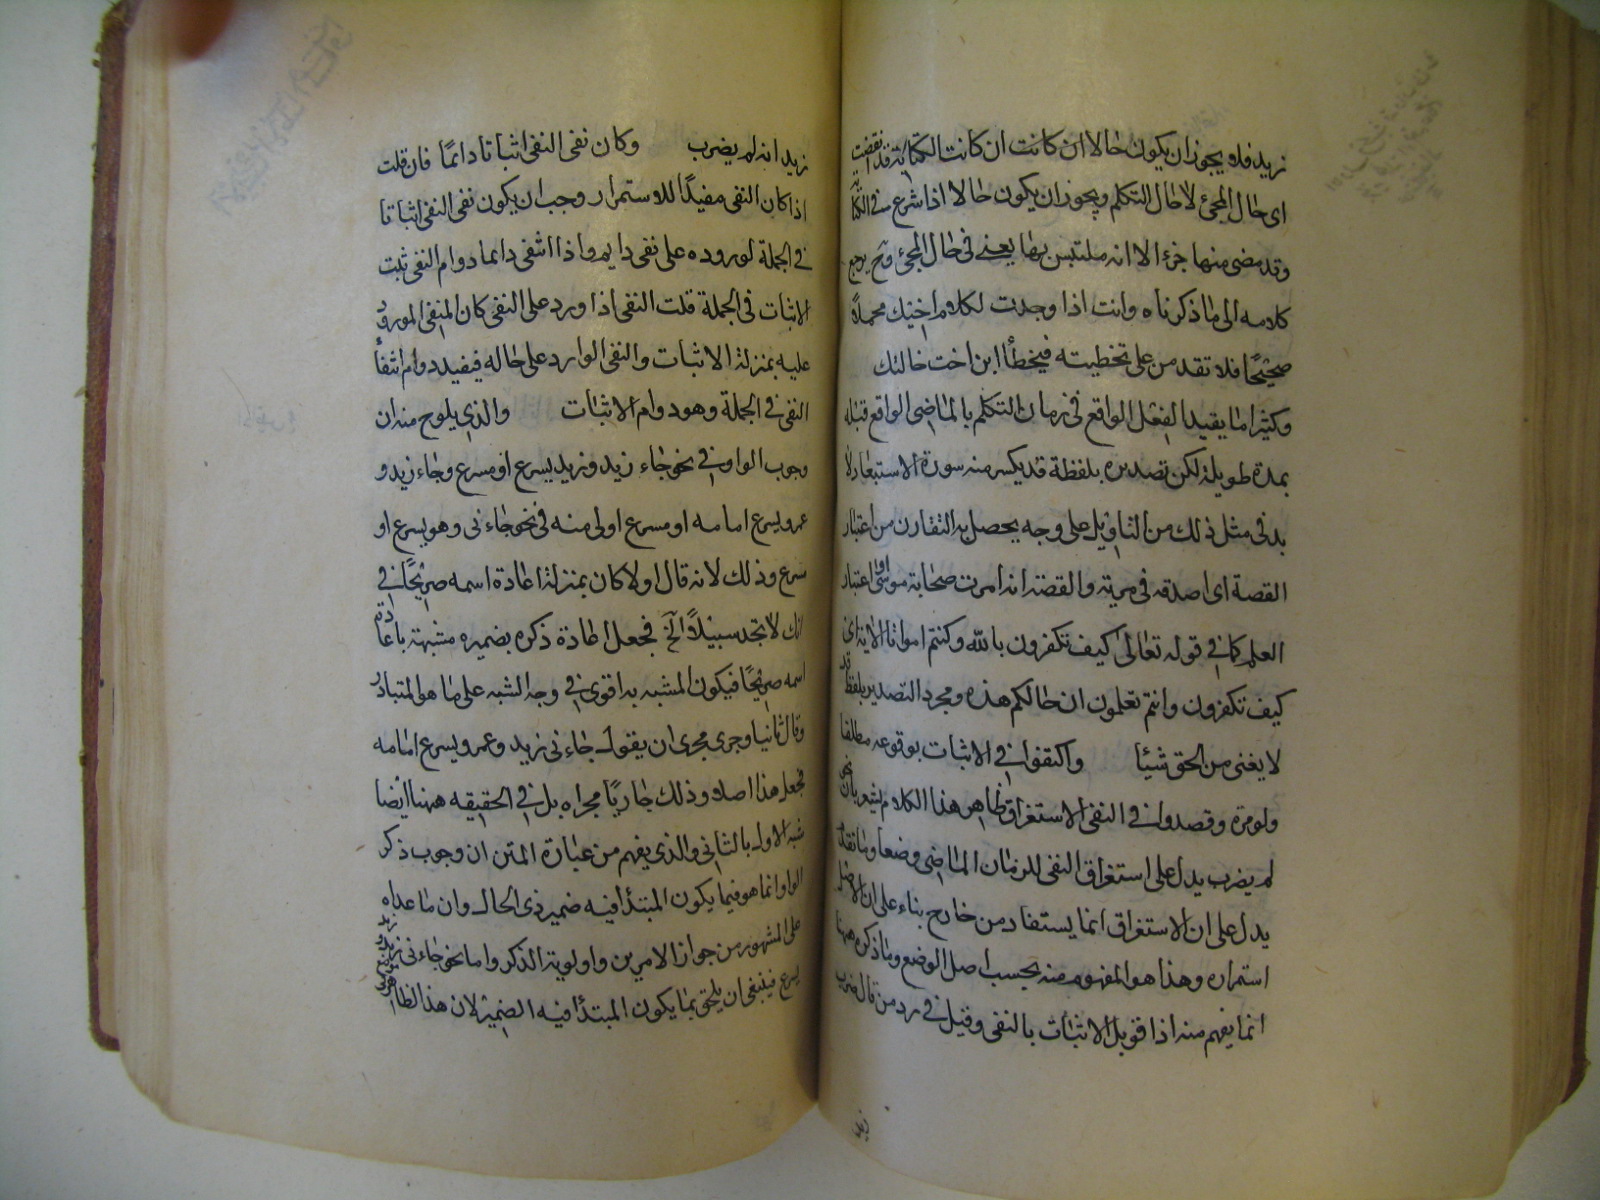 زيد فلا يجوز ان يكون حالا ان كانت ان كانت الكتابة قد انقضت
اى حال المجئ لا حال التكلم ويجوز ان يكون حالا اذا شرع فى الكتابة
وقد مضى منها جزء الا انه ملتبس بها يعنى فى حال المجئ وح يرجع
كلامه الى ما ذكرناه وانت اذا وجدت لكلام اخيك محملاً
صحيحًا فلا تقدمن على تخطيته فيخطأ ابن اخت خالتك
وكثيرا ما يقيد الفعل الواقع فى زمان التكلم بالماضى الواقع قبله
بمدة طويلة لكن تصديره بلفظة قد يكسر منه سورة الاستبعاد ولا
بد فى مثل ذلك من التاويل على وجه يحصل به التقارن من اعتبار
القصة اى اصدقه فى مريته والقصة انه امرت صحابة موسى او اعتبار
العلم كما فى قوله تعالى كيف تكفرون بالله وكنتم امواتا الاية اى
كيف تكفرون وانتم تعلمون ان حالكم هذه ومجرد التصدير بلفظ قد
لا يغنى من الحق شيئا واكتفوا فى الاثبات بوقوعه مطلقا
ولو مرة وقصدوا فى النفى الاستغراق ظاهر هذا الكلام يشعر بان نحو
لم يضرب يدل على استغراق النفى للزمان الماضى وضعا وما تقدم
يدل على ان الاستغراق انما يستفاد من خارج بناء على ان الاصل
استمراره وهذا هو المفهوم منه بحسب اصل الوضع وما ذكره ههنا
انما يفهم منه اذا قوبل الاثبات بالنفى وقيل فى رد من قال ضرب
زيد
زيد انه لم يضرب وكان نفى النفى اثباتا دائمًا فان قلت
اذا كان النفى مفيدًا للاستمرار وجب ان يكون نفى النفى اثباتا
فى الجملة لوروده على نفى دايم واذا انتفى دائما دوام النفى ثبت
الاثبات فى الجملة قلت النفى اذا ورد على النفى كان المنفى المورود
عليه بمنزلة الاثبات والنفى الوارد على حاله فيفيد دوام انتفاء
النفى فى الجملة وهو دوام الاثبات والذى يلوح منه ان
وجوب الواو فى نحو جاء زيد وزيد يسرع او مسرع وجاء زيد و
عمرو يسرع امامه او مسرع اولى منه فى نحو جاءنى وهو يسرع او
مسرع وذلك لانه قال اولا كان بمنزلة اعادة اسمه صريحًا فى
انك لا تجد سبيلاً الخ فجعل اعادة ذكره بضميره مشبهة باعادة
اسمه صريحًا فيكون المشبه به اقوى فى وجه الشبه على ما هو المتبادر
وقال ثانيا وجرى مجرى ان يقول جاءنى زيد وعمرو يسرع امامه
فجعل هذا اصلا وذلك جاريًا مجراه بل فى الحقيقه ههنا ايضا
شبه الاول بالثانى والذى يفهم من عبارة المتن ان وجوب ذكر
الواو انما هو فيما يكون المبتدأ فيه ضمير ذى الحال وان ما عداه
على المشهور من جواز الامرين واولوية الذكر واما نحو جاءنى زيد وزيد
يسرع فينبغى ان يلحق بما يكون المبتدأ فيه الضمير لان هذا الظاهر